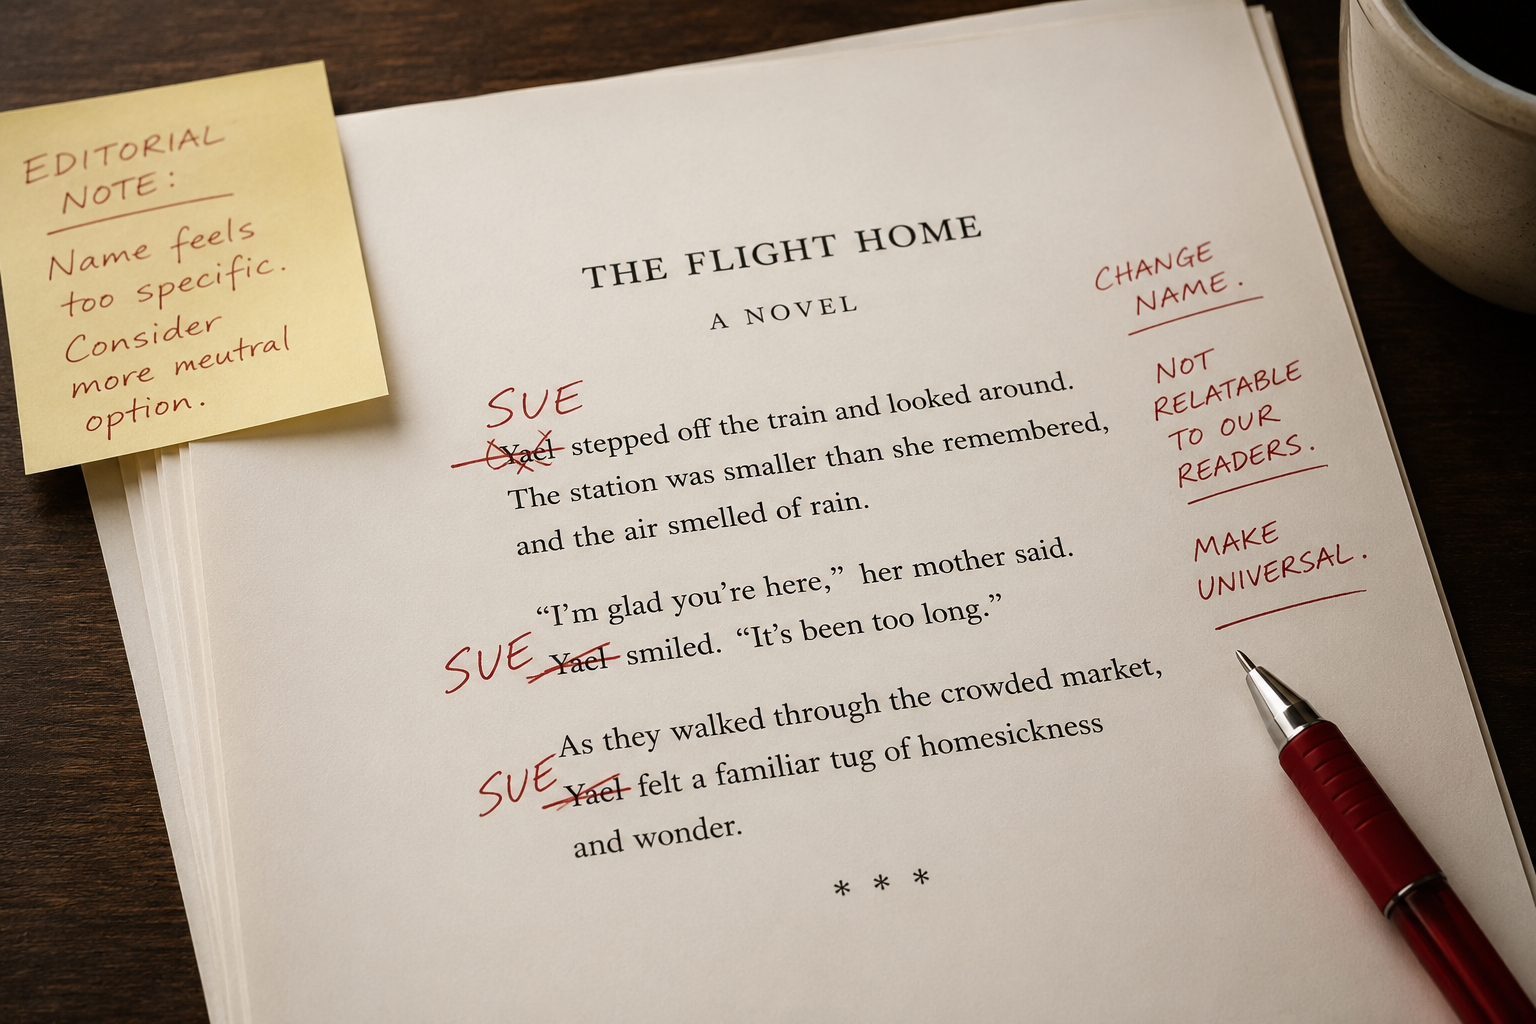 EDITORIAL
NOTE:
Name feels
too specific.
Consider
more meutral
option.
THE FLIGHT HOME
A NOVEL
SUE
Yael stepped off the train and looked around.
The station was smaller than she remembered,
and the air smelled of rain.
“I’m glad you’re here,” her mother said.
SUE Yael smiled. “It’s been too long.”
As they walked through the crowded market,
SUE Yael felt a familiar tug of homesickness
and wonder.
* * *
CHANGE
NAME.
NOT
RELATABLE
TO OUR
READERS.
MAKE
UNIVERSAL.